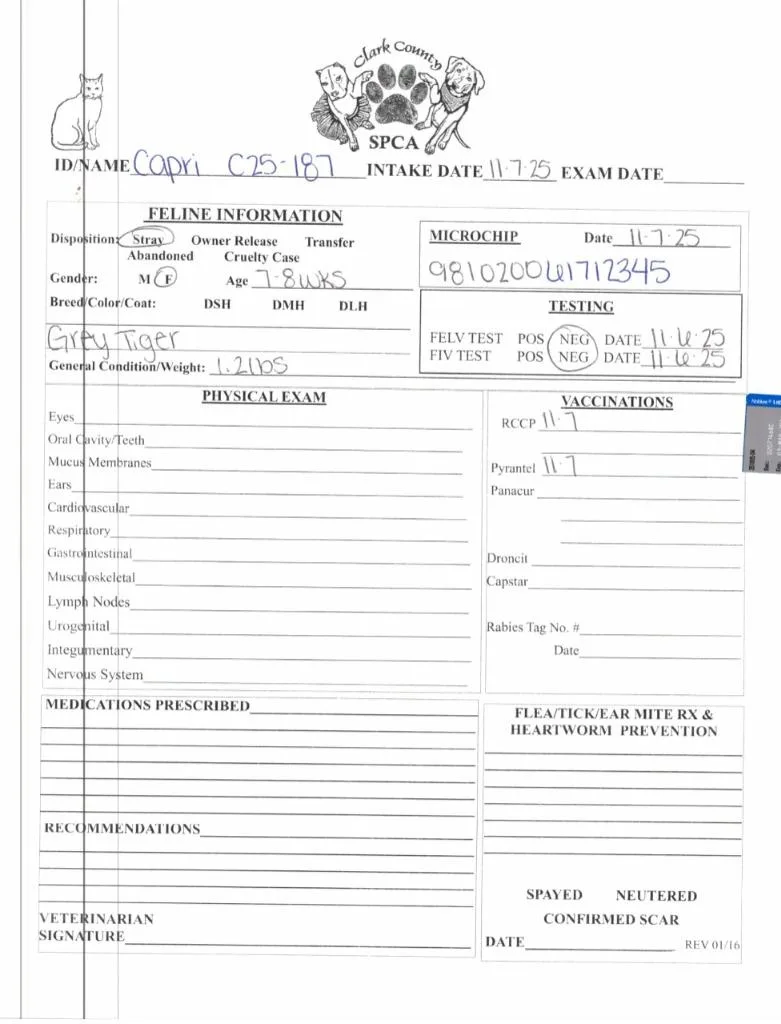 Clark County
SPCA
ID/NAME Capri C25-187 INTAKE DATE 11-7-25 EXAM DATE
FELINE INFORMATION
Disposition: Stray Owner Release Transfer
Abandoned Cruelty Case
Gender: M F Age 7-8wks
Breed/Color/Coat: DSH DMH DLH
Grey Tiger
General Condition/Weight: 1.2lbs
MICROCHIP Date 11-7-25
981020061712345
TESTING
FELV TEST POS NEG DATE 11-6-25
FIV TEST POS NEG DATE 11-6-25
PHYSICAL EXAM
Eyes
Oral Cavity/Teeth
Mucus Membranes
Ears
Cardiovascular
Respiratory
Gastrointestinal
Musculoskeletal
Lymph Nodes
Urogenital
Integumentary
Nervous System
VACCINATIONS
RCCP 11-7
Pyrantel 11-7
Panacur
Droncit
Capstar
Rabies Tag No. #
Date
MEDICATIONS PRESCRIBED
RECOMMENDATIONS
VETERINARIAN
SIGNATURE
FLEA/TICK/EAR MITE RX &
HEARTWORM PREVENTION
SPAYED NEUTERED
CONFIRMED SCAR
DATE REV 01/16